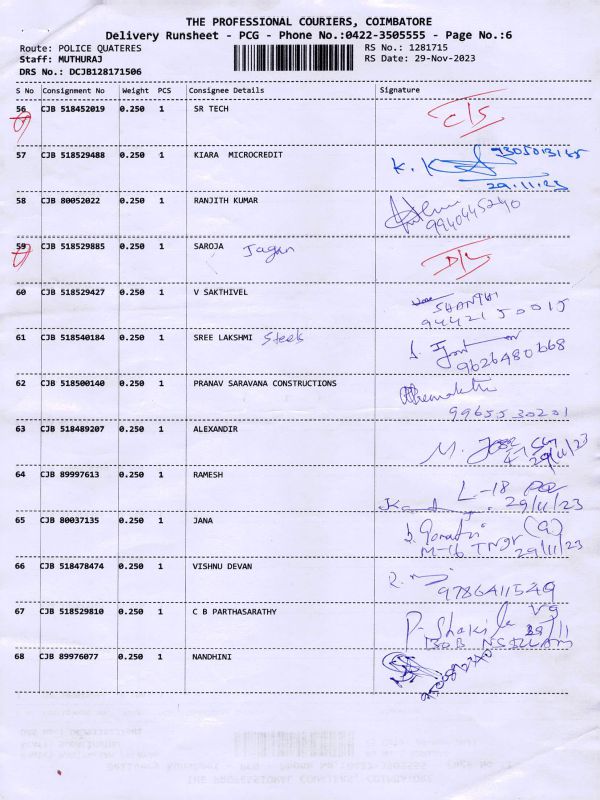 THE PROFESSIONAL COURIERS, COIMBATORE
Delivery Runsheet - PCG - Phone No.:0422-3505555 - Page No.:6
Route: POLICE QUATERES RS No.: 1281715
Staff: MUTHURAJ RS Date: 29-Nov-2023
DRS No.: DCJB128171506
S No Consignment No Weight PCS Consignee Details Signature
56 CJB 518452019 0.250 1 SR TECH
57 CJB 518529488 0.250 1 KIARA MICROCREDIT
29.11.23
58 CJB 80052022 0.250 1 RANJITH KUMAR
9940445240
59 CJB 518529885 0.250 1 SAROJA Jagan
60 CJB 518529427 0.250 1 V SAKTHIVEL SHANTHI
9442150015
61 CJB 518540184 0.250 1 SREE LAKSHMI Steels
9626480668
62 CJB 518500140 0.250 1 PRANAV SARAVANA CONSTRUCTIONS
9965530201
63 CJB 518489207 0.250 1 ALEXANDIR M.
29/11/23
64 CJB 89997613 0.250 1 RAMESH L-18
29/11/23
65 CJB 80037135 0.250 1 JANA
M-16 29/11/23
66 CJB 518478474 0.250 1 VISHNU DEVAN
9786411549
67 CJB 518529810 0.250 1 C B PARTHASARATHY P. Shakila
68 CJB 89976077 0.250 1 NANDHINI